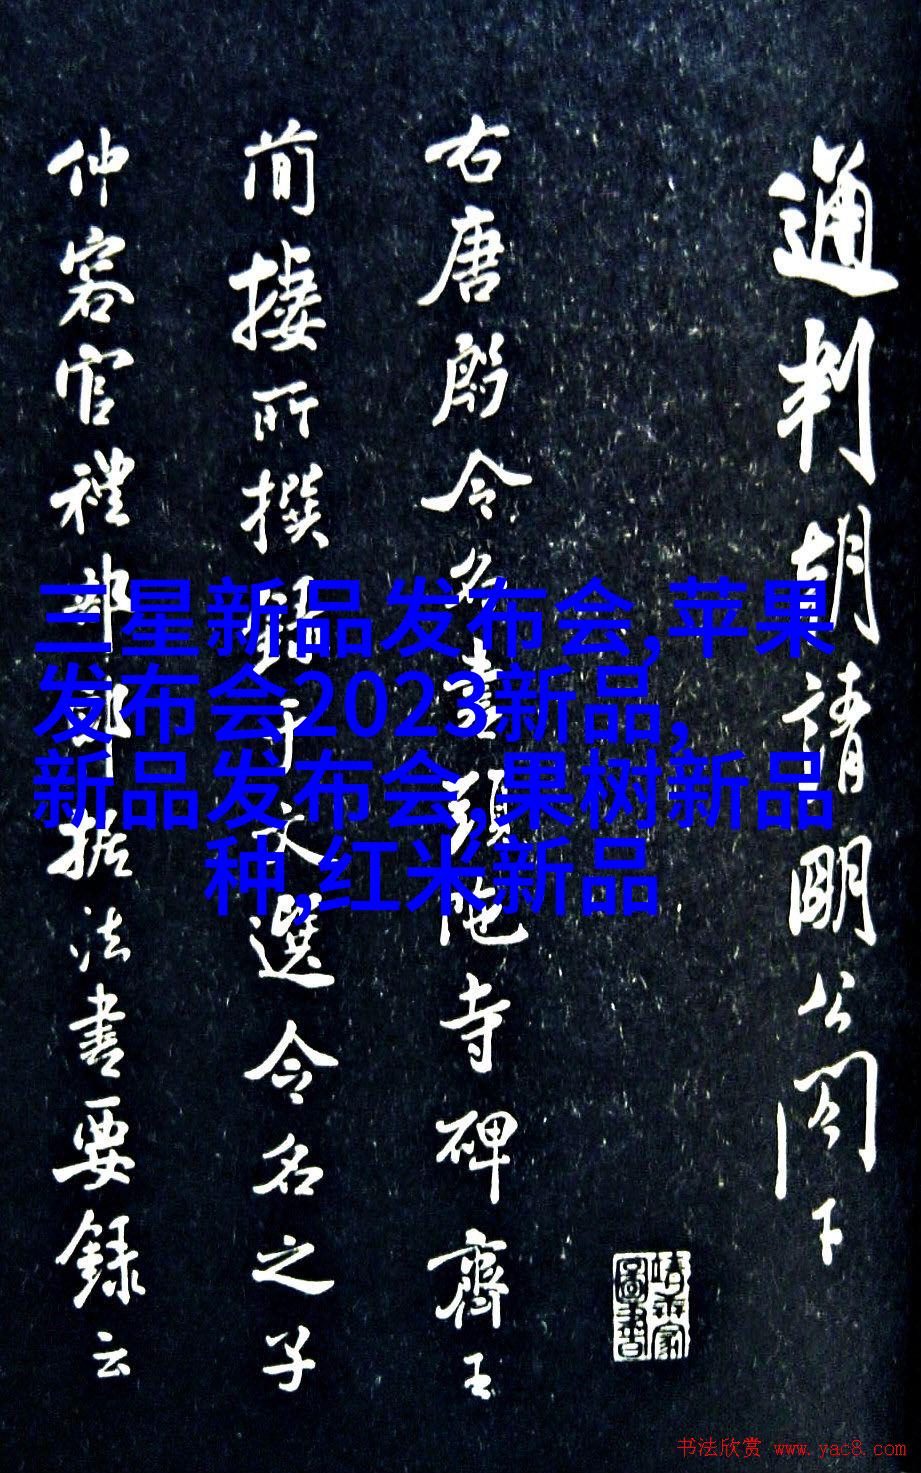 通判胡請明公閤下
右唐殷令名書頭陁寺碑齊王
簡棲所撰錄于文選令名之子
仲容官禮部郎中據法書要録云
三星新品发布会,苹果
发布会2023新品,
新品发布会,果树新品
种,红米新品
书法欣赏 www.yac8.com